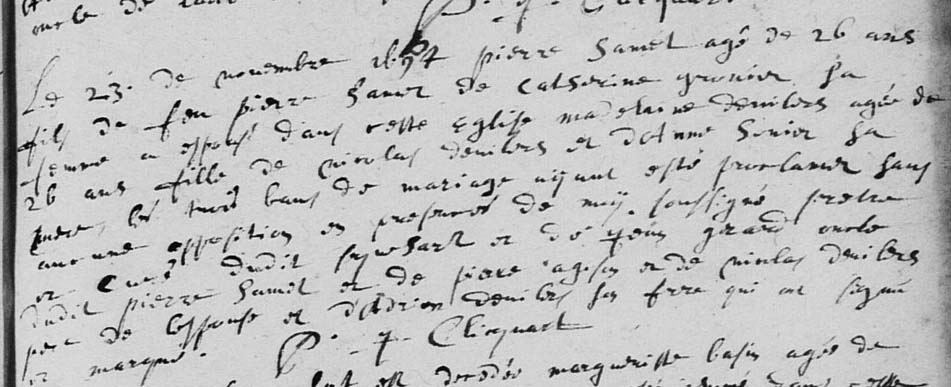 oncle de
P. q. Clicquart
Le 23. de novembre 1694 pierre hamel agé de 26 ans
fils de feu pierre hamel de Catherine gronier sa
femme a espousé dans cette Eglise madelaine devilers agée de
26 ans fille de Nicolas devilers et d'Anne senier sa
mere, les trois bans de mariage ayant esté proclamer sans
aucune opposition en presences de moy soussigné prestre
et Curé dudit et de girard oncle
dudit pierre hamel et de piere et de nicolas devilers
pere de l'espouse et d'Adrien devilers son frere qui ont signé
et marqué. P. q. Clicquart
est decedée margueritte basin agée de